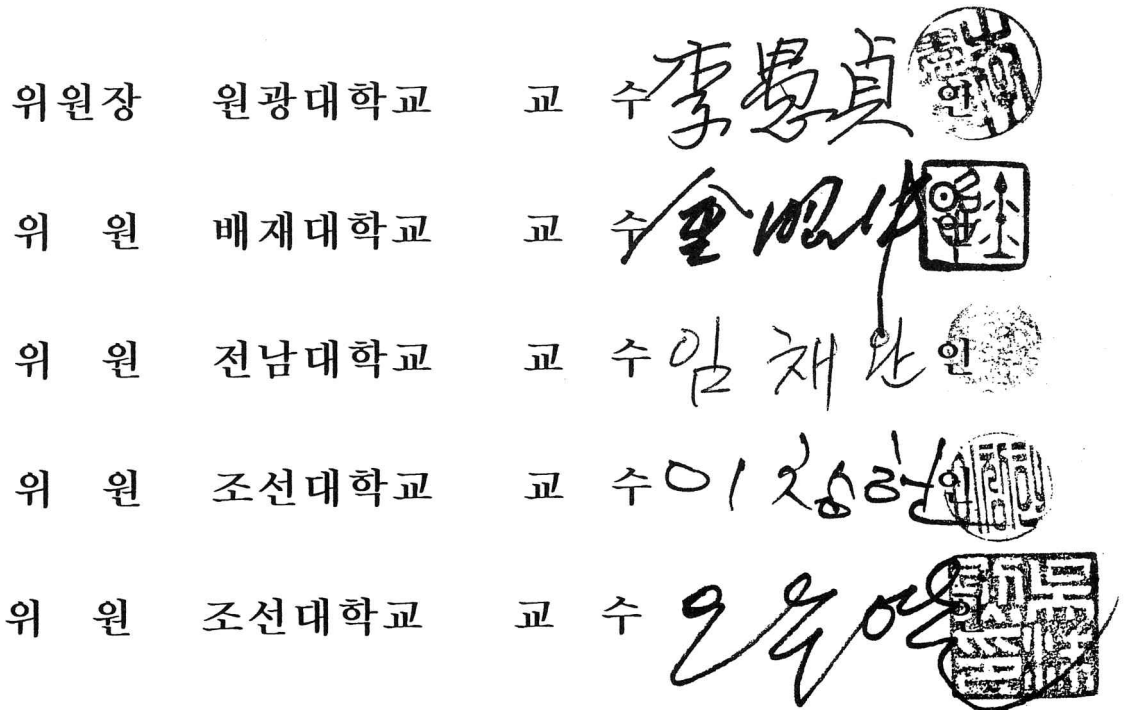 위원장 원광대학교 교 수 李愚貞 인
위 원 배재대학교 교 수 金 인
위 원 전남대학교 교 수 임채완 인
위 원 조선대학교 교 수 이창헌 인
위 원 조선대학교 교 수 오수열 인